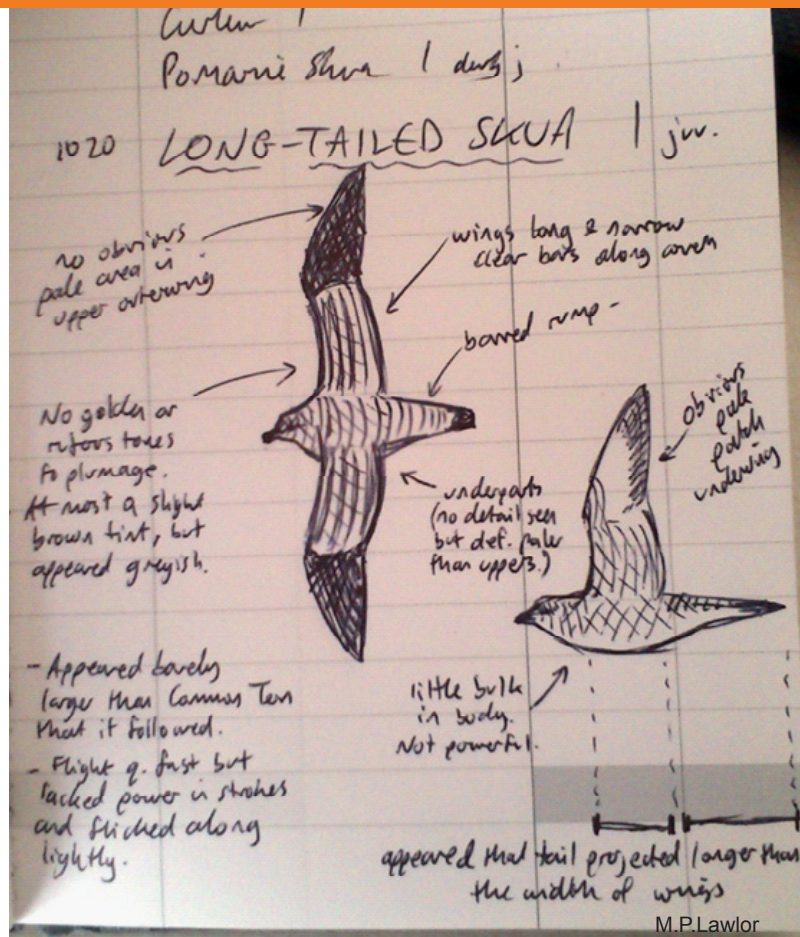 Curlew 1
Pomarine Skua 1 dark j.
1020 LONG-TAILED SKUA 1 juv.
no obvious
pale area in
upper outerwing
wings long & narrow
clear bars along coverts
barred rump -
No golden or
rufous tones
to plumage.
At most a slight
brown tint, but
appeared greyish.
underparts
(no detail seen
but def. paler
than uppers.)
obvious
pale
patch
underwing
- Appeared barely
larger than Common Tern
that it followed.
- Flight q. fast but
lacked power in strokes
and flicked along
lightly.
little bulk
in body.
Not powerful.
appeared that tail projected longer than
the width of wings
M.P.Lawlor